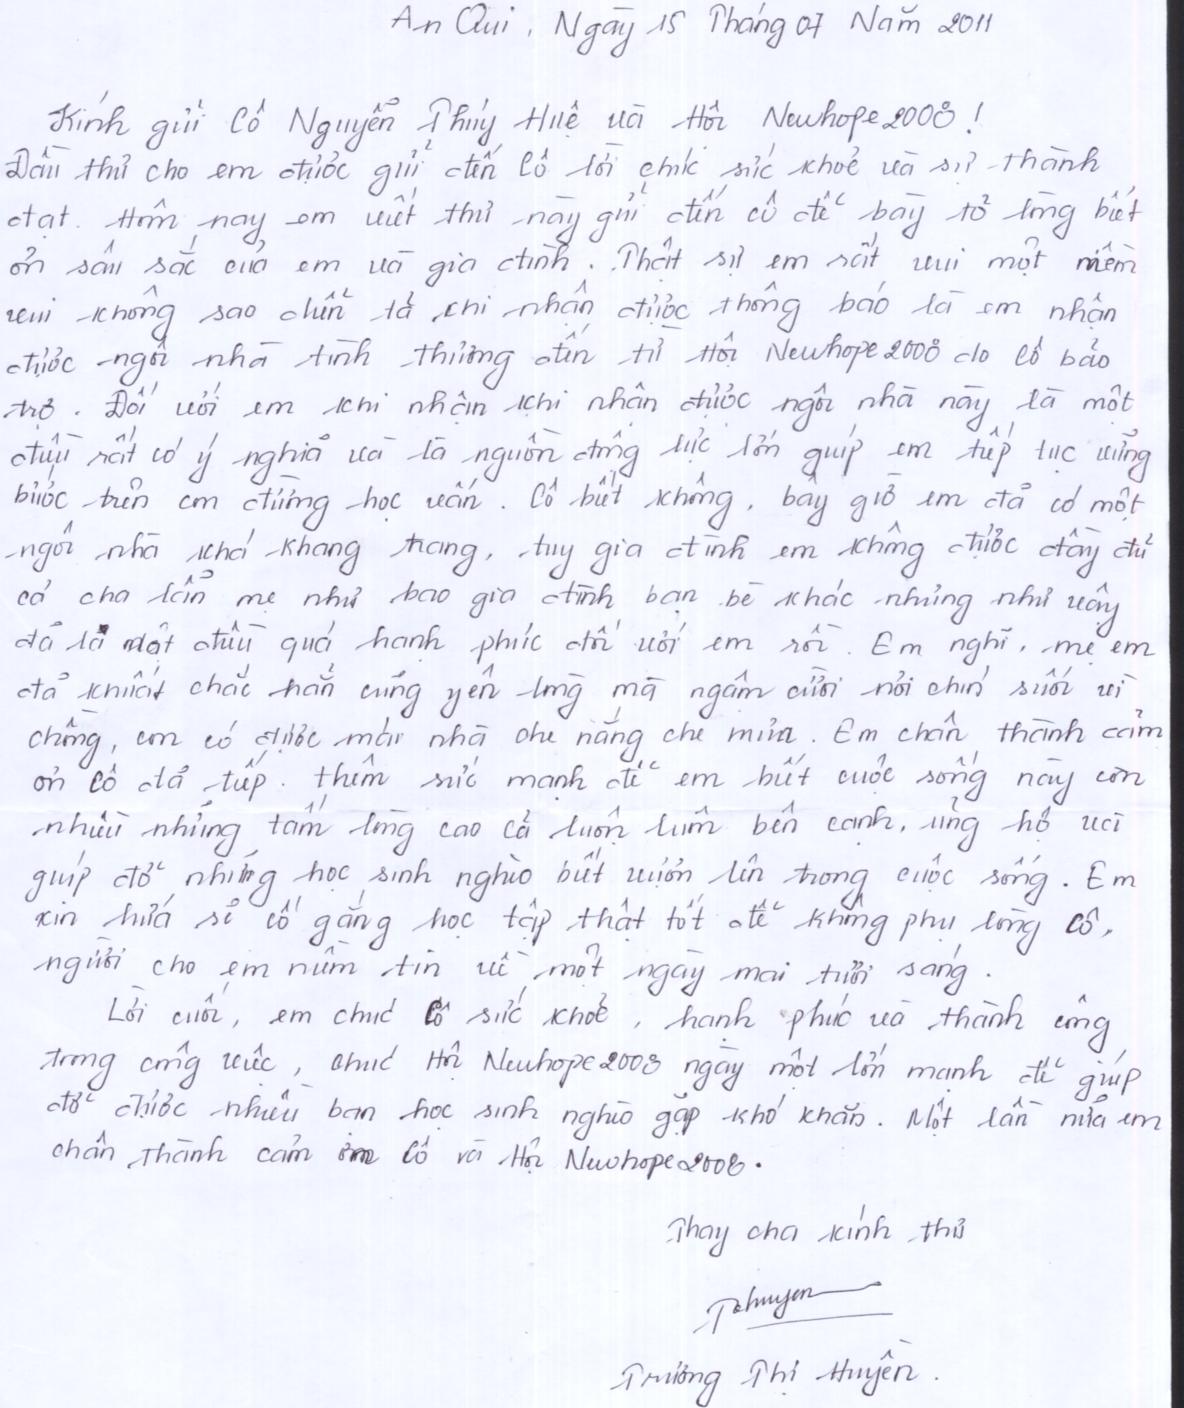 An Qui, Ngày 15 Tháng 07 Năm 2011
Kính gửi Cô Nguyễn Thúy Huệ và Hội Newhope2008!
Đầu thư cho em được gửi đến Cô lời chúc sức khoẻ và sự thành
đạt. Hôm nay em viết thư này gửi đến cô để bày tỏ lòng biết
ơn sâu sắc của em và gia đình. Thật sự em rất vui một niềm
vui không sao diễn tả khi nhận được thông báo là em nhận
được ngôi nhà tình thương đến từ Hội Newhope2008 do Cô bảo
trợ. Đối với em khi nhận khi nhận được ngôi nhà này là một
điều rất có ý nghĩa và là nguồn động lực lớn giúp em tiếp tục vững
bước trên con đường học vấn. Cô biết không, bây giờ em đả có một
ngôi nhà khá khang trang, tuy gia đình em không được đầy đủ
cả cha lẩn mẹ như bao gia đình bạn bè khác nhưng như vậy
đả là một điều quá hạnh phúc đối với em rồi. Em nghĩ, mẹ em
đả khuất chắc hẳn cũng yên lòng mà ngậm cười nơi chín suối vì
chồng, con có được mái nhà che nắng che mưa. Em chân thành cảm
ơn Cô đả tiếp thêm sức mạnh để em biết cuộc sống này còn
nhiều những tấm lòng cao cả luôn luôn bên cạnh, ủng hộ và
giúp đở những học sinh nghèo biết vượn lên trong cuộc sống. Em
xin hứa sẻ cố gắng học tập thật tốt để không phụ lòng Cô,
người cho em niềm tin về một ngày mai tươi sáng.
Lời cuối, em chúc Cô sức khoẻ, hạnh phúc và thành công
trong công việc, chúc Hội Newhope2008 ngày một lớn mạnh để giúp
đở được nhiều bạn học sinh nghèo gặp khó khăn. Một lần nữa em
chân thành cảm ơn Cô và Hội Newhope2008.
Thay cha kính thư
Trương Thị Huyền.